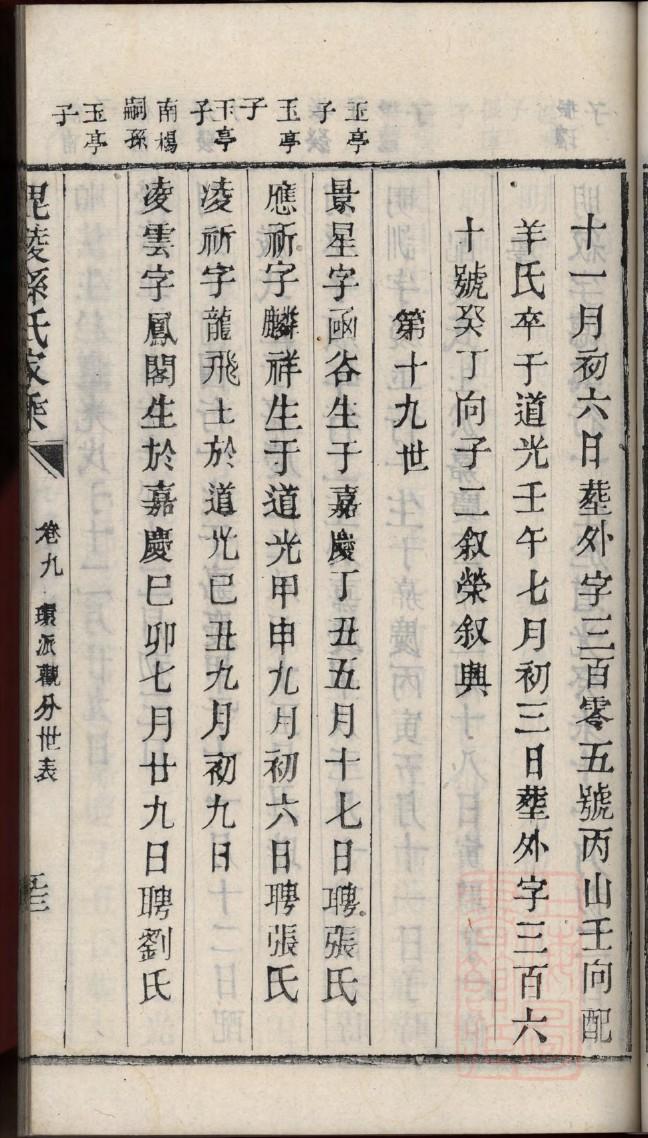 十一月初六日塟外字三百零五號丙山壬向配
羊氏卒于道光壬午七月初三日塟外字三百六
十號癸丁向子二叙榮叙興
第十九世
玉亭
子
景星字函谷生于嘉慶丁丑五月十七日聘張氏
玉亭
子
應祈字麟祥生于道光甲申九月初六日聘張氏
玉亭
子
凌祈字龍飛生於道光己丑九月初九日
南楊
嗣孫
玉亭
子
凌雲字鳳閣生於嘉慶己卯七月廿九日聘劉氏
毘陵孫氏家乘
卷九
環派觀分世表